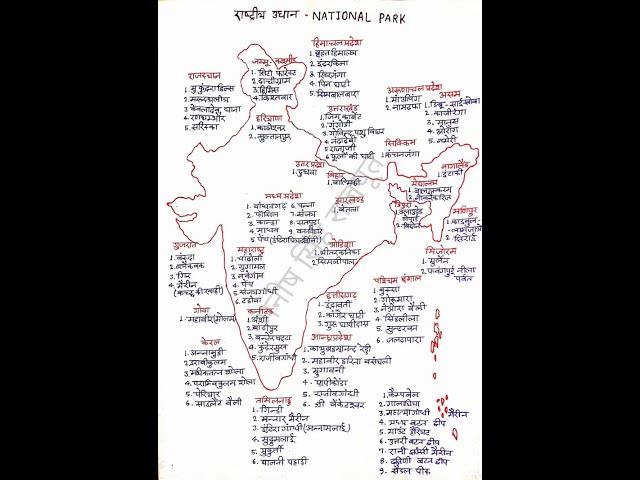 राष्ट्रीय उधान - NATIONAL PARK
हिमाचल प्रदेश
1. वृहत हिमालय
2. इंदरकिला
3. खिरगंगा
4. पिन घाटी
5. सिमबलबारा
जम्मू-कश्मीर
1. सिटी फॉरेस्ट
2. दाचीग्राम
3. हेमिस
4. किश्तवार
राजस्थान
1. मुकुन्दरा हिल्स
2. मरुस्थलीय
3. केवलादेव, घाना
4. रणथम्भौर
5. सरिस्का
हरियाणा
1. कालेशर
2. सुल्तानपुर
उत्तराखण्ड
1. जिम कार्बेट
2. गंगोत्री
3. गोविन्द पशु विहार
4. नंदादेवी
5. राजाजी
6. फूलों की घाटी
अरुणाचल प्रदेश
1. माउलिंग
2. नामदफा
असम
1. डिब्रू-साईखोवा
2. काजीरंगा
3. मानस
4. ओरांग
5. नमेरी
सिक्किम
1. कंचनजंगा
उत्तर प्रदेश
1. दुधवा
बिहार
1. वाल्मिकी
नागालैंड
1. इंटाकी
मेघालय
1. बालफाकरम
2. नोकरेकरिज
मध्य प्रदेश
1. बांधवगढ़
2. फॉसिल
3. कान्हा
4. माधव
5. पेंच (इंदिराप्रियदर्शिनी)
6. पन्ना
7. संजय
8. सतपुरा
9. वनविहार
झारखण्ड
1. बेतला
त्रिपुरा
1. क्लाउडेड
लेपार्ड
2.
मणिपुर
1. काइबुल-
लामजाओ
2. सिरोई
गुजरात
1. वंसदा
2. ब्लैकबक
3. गिर
4. मैरीन
(कच्छ की खाड़ी)
महाराष्ट्र
1. चांदोली
2. गुगामल
3. नवेगाँव
4. पेंच
5. संजय गाँधी
6. टडोबा
ओडिशा
1. भीतरकनिका
2. सिमलीपाल
मिजोरम
1. मुर्लेन
2. फवंगपुई नीला
पर्वत
पश्चिम बंगाल
1. बुक्सा
2. गोरूमारा
3. नेओरा वैली
4. सिंगलीला
5. सुन्दरबन
6. जलदापारा
छत्तीसगढ़
1. इंद्रावती
2. कांगेर घाटी
3. गुरु घासीदास
गोवा
1. महावीर (मोलेम)
कर्नाटक
1. अंशी
2. बांदीपुर
3. बन्नेरघट्टा
4. कुद्रेमुख
5. राजीव गांधी
आन्ध्रप्रदेश
1. कासुब्रह्मानन्द रेड्डी
2. महावीर हरिना वनस्थली
3. मुगावनी
4. पापीकोंडा
5. राजीव गांधी
6. श्री वेंकटेश्वर
केरल
1. अनामुडी
2. इराविकुलम
3. मथिकेत्तन शोला
4. पाम्बिकुलम शोला
5. पेरियार
6. साइलेंट वैली
तमिलनाडु
1. गिन्डी
2. मन्नार मैरीन
3. इंदिरा गांधी (अन्नामलाई)
4. मुदुमलाई
5. मुकुर्ती
6. पालनी पहाड़ी
1. कैम्पबेल
2. गालथिया
3. महात्मा गांधी मैरीन
4. मध्य बटन द्वीप
5. माउंट हैरियट
6. उत्तरी बटन द्वीप
7. रानी झाँसी मैरीन
8. दक्षिणी बटन द्वीप
9. सैडल पीक